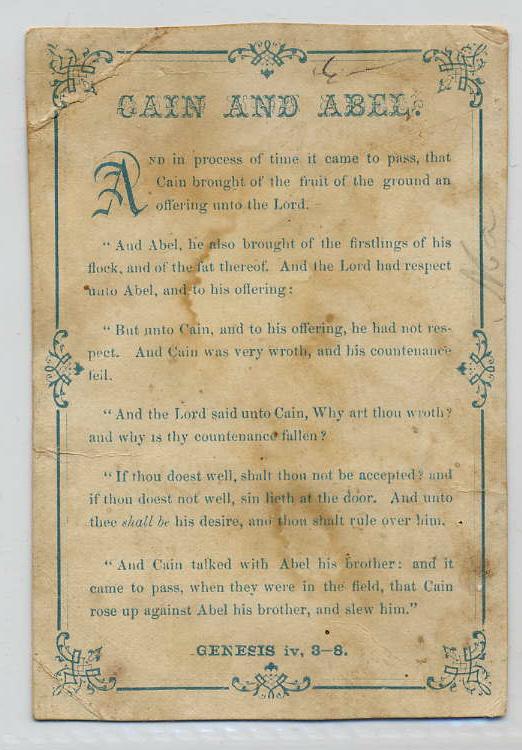 CAIN AND ABEL.
AND in process of time it came to pass, that
Cain brought of the fruit of the ground an
offering unto the Lord.
"And Abel, he also brought of the firstlings of his
flock, and of the fat thereof. And the Lord had respect
unto Abel, and to his offering:
"But unto Cain, and to his offering, he had not res-
pect. And Cain was very wroth, and his countenance
fell.
"And the Lord said unto Cain, Why art thou wroth?
and why is thy countenance fallen?
"If thou doest well, shalt thou not be accepted? and
if thou doest not well, sin lieth at the door. And unto
thee shall be his desire, and thou shalt rule over him.
"And Cain talked with Abel his brother: and it
came to pass, when they were in the field, that Cain
rose up against Abel his brother, and slew him."
GENESIS iv, 3–8.